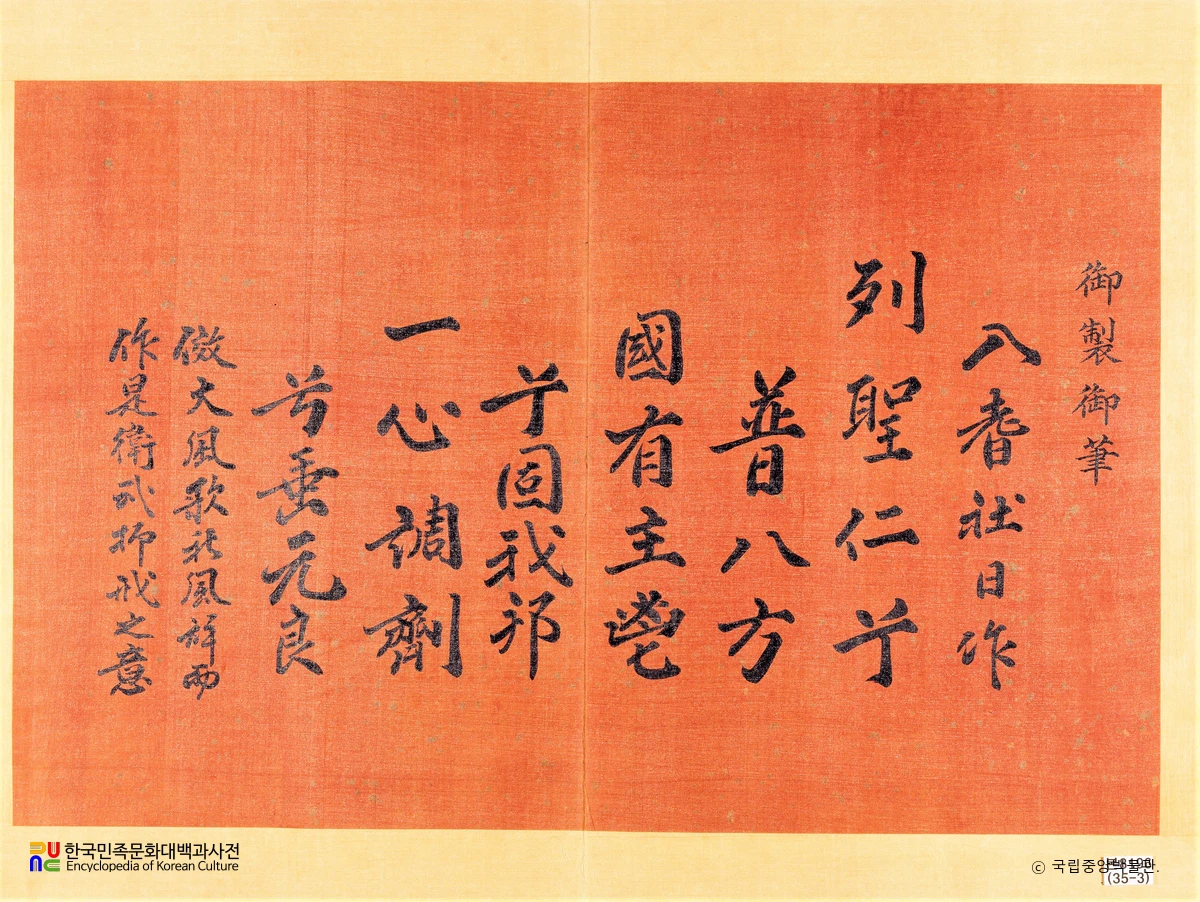 御製御筆
入耆社日作
列聖仁兮
普八方
國有主鬯
兮固我邦
一心調劑
兮垂元良
倣大風歌秋風辭而
作是衛武抑戒之意
한국민족문화대백과사전
Encyclopedia of Korean Culture
ⓒ 국립중앙박물관.
(35-3)